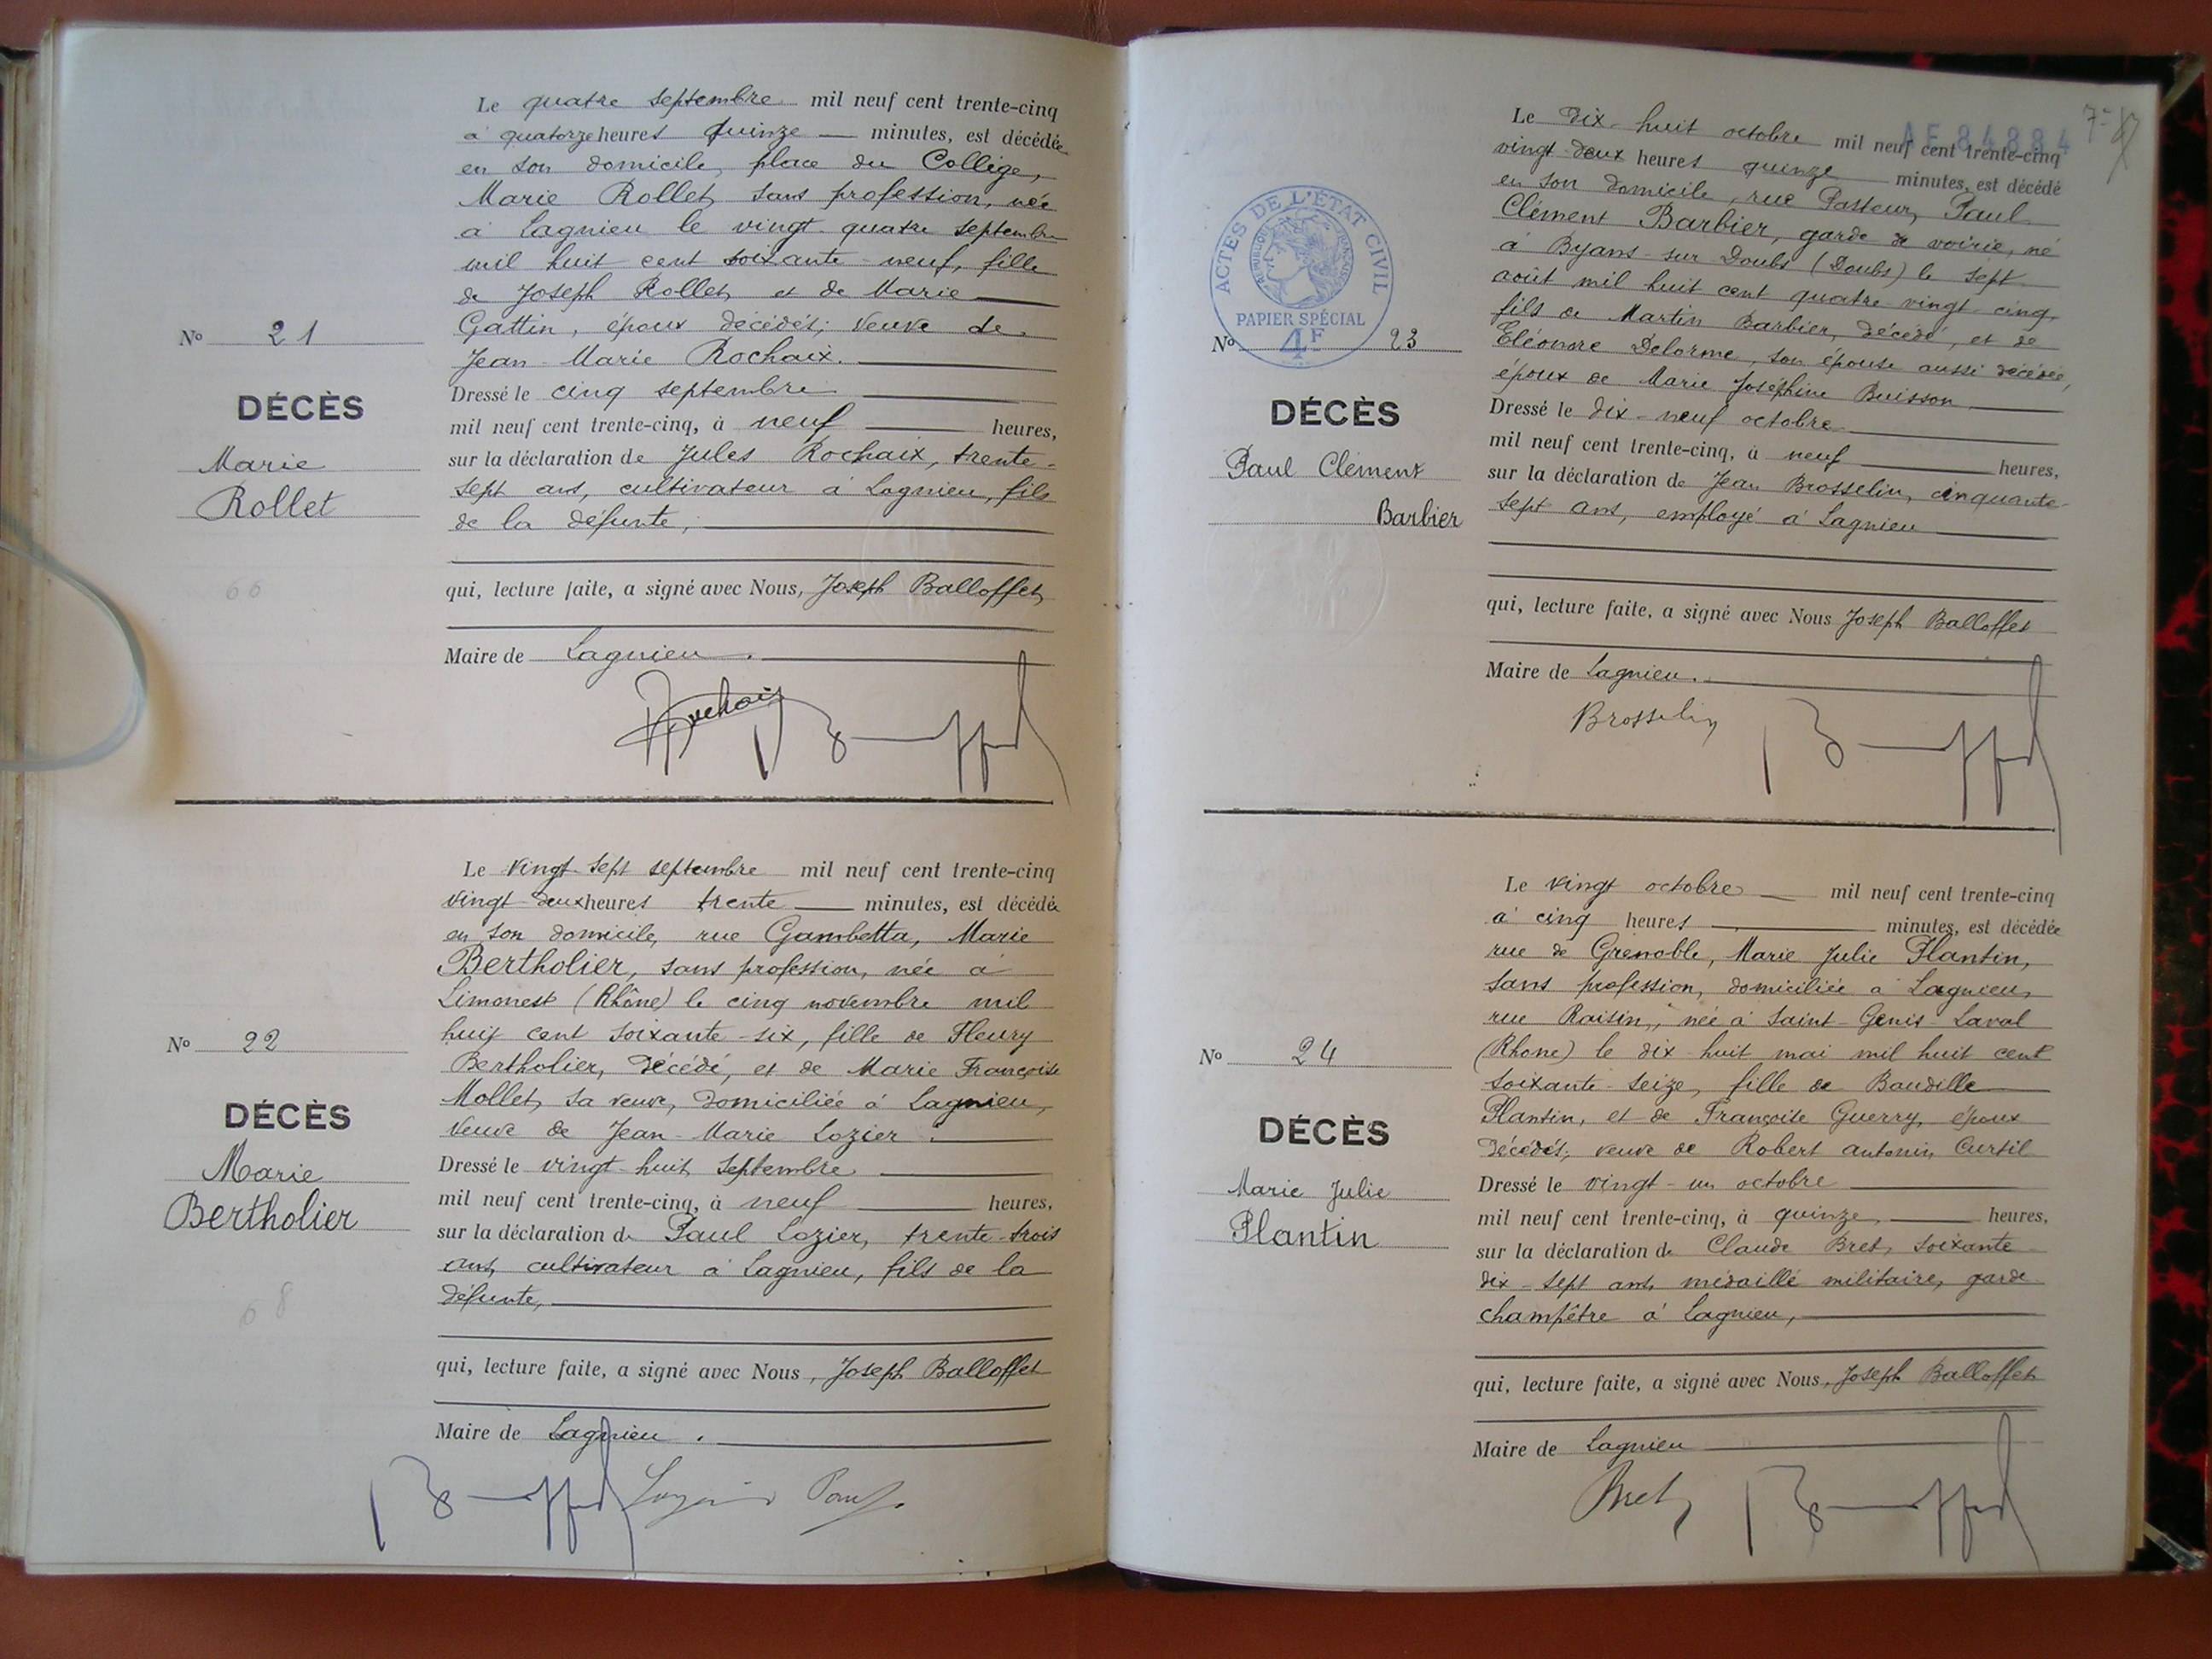 Le quatre septembre mil neuf cent trente-cinq
à quatorze heures quinze minutes, est décédée
en son domicile, place du Collège,
Marie Rollet, sans profession, née
à Lagnieu le vingt-quatre septembre
mil huit cent soixante-neuf, fille
de Joseph Rollet, et de Marie
Gattin, époux décédés; veuve de
Jean-Marie Rochaix.
Dressé le cinq septembre
mil neuf cent trente-cinq, à neuf heures,
sur la déclaration de Jules Rochaix, trente-
sept ans, cultivateur à Lagnieu, fils
de la défunte,
qui, lecture faite, a signé avec Nous, Joseph Balloffet,
Maire de Lagnieu.
No 21
DÉCÈS
Marie
Rollet
66
Le vingt-sept septembre mil neuf cent trente-cinq
vingt-deux heures trente minutes, est décédée
en son domicile, rue Gambetta, Marie
Bertholier, sans profession, née à
Limonest (Rhône) le cinq novembre mil
huit cent soixante-six, fille de Fleury
Bertholier, décédé, et de Marie Françoise
Mollet, sa veuve, domiciliée à Lagnieu,
Veuve de Jean-Marie Lozier.
Dressé le vingt-huit septembre
mil neuf cent trente-cinq, à neuf heures,
sur la déclaration de Paul Lozier, trente-trois
ans, cultivateur à Lagnieu, fils de la
défunte,
qui, lecture faite, a signé avec Nous, Joseph Balloffet
Maire de Lagnieu.
No 22
DÉCÈS
Marie
Bertholier
68
AE 84884
Le dix-huit octobre mil neuf cent trente-cinq
vingt-deux heures quinze minutes, est décédé
en son domicile, rue Pasteur, Paul
Clément Barbier, garde de voirie, né
à Byans-sur-Doubs (Doubs) le sept
août mil huit cent quatre-vingt-cinq,
fils de Martin Barbier, décédé, et de
Eléonore Delorme, son épouse aussi décédée,
époux de Marie Joséphine Buisson
Dressé le dix-neuf octobre
mil neuf cent trente-cinq, à neuf heures,
sur la déclaration de Jean Brosselin, cinquante-
sept ans, employé à Lagnieu
qui, lecture faite, a signé avec Nous Joseph Balloffet
Maire de Lagnieu.
Brosselin
ACTES DE L'ÉTAT CIVIL
RÉPUBLIQUE FRANÇAISE
PAPIER SPÉCIAL
4F
No 23
DÉCÈS
Paul Clément
Barbier
Le vingt octobre mil neuf cent trente-cinq
à cinq heures minutes, est décédée
rue de Grenoble, Marie Julie Plantin,
sans profession, domiciliée à Lagnieu,
rue Raisin, née à Saint-Genis-Laval
(Rhone) le dix-huit mai mil huit cent
soixante-seize, fille de Baudille
Plantin, et de Françoise Guerry, époux
décédés, veuve de Robert Antonin Curtil
Dressé le vingt-un octobre
mil neuf cent trente-cinq, à quinze heures,
sur la déclaration de Claude Bret, soixante-
dix-sept ans, médaillé militaire, garde
champêtre à Lagnieu,
qui, lecture faite, a signé avec Nous, Joseph Balloffet
Maire de Lagnieu
Bret
No 24
DÉCÈS
Marie Julie
Plantin